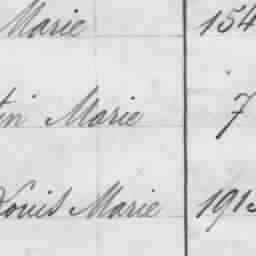 Marie 154
tin Marie 7
Louis Marie 191